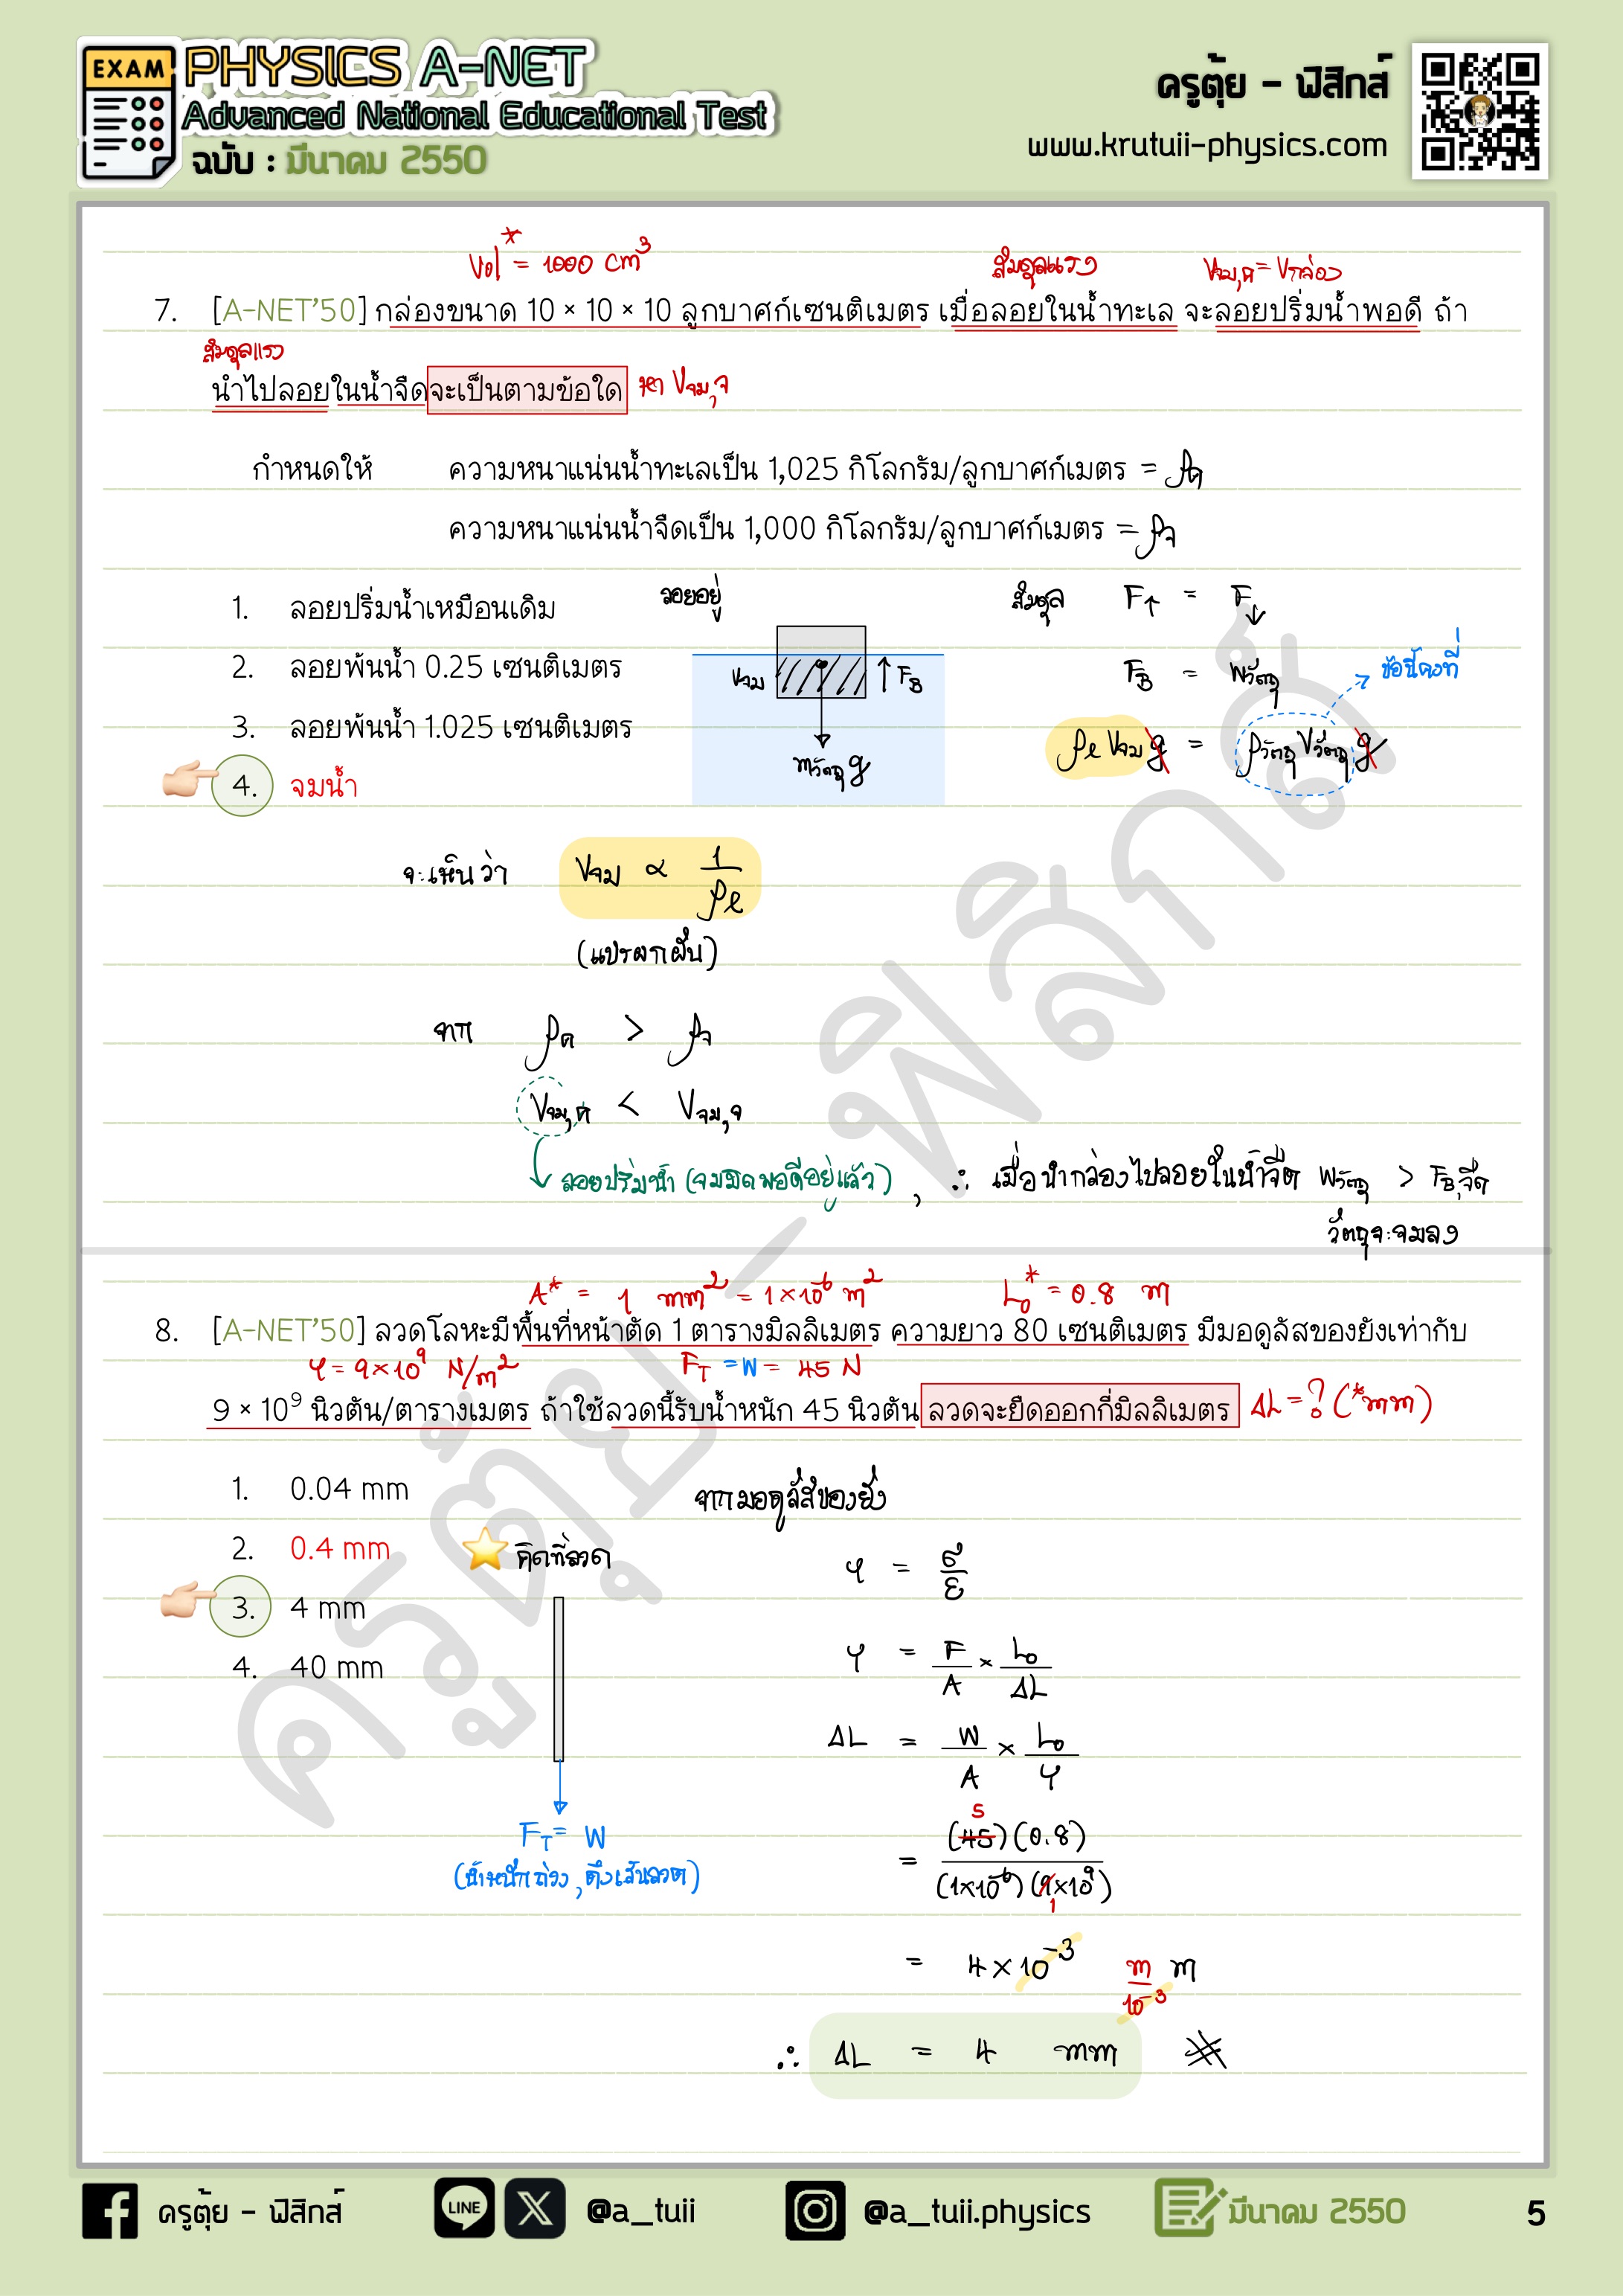 EXAM
PHYSICS A-NET
Advanced National Educational Test
ฉบับ : มีนาคม 2550
ครูตุ้ย - ฟิสิกส์
www.krutuii-physics.com
Vol* = 1000 cm³
สมดุลแรง
Vจม,ท = Vกล่อง
7. [A-NET'50] กล่องขนาด 10 × 10 × 10 ลูกบาศก์เซนติเมตร เมื่อลอยในน้ำทะเล จะลอยปริ่มน้ำพอดี ถ้า
สมดุลแรง
นำไปลอยในน้ำจืดจะเป็นตามข้อใด หา Vจม,จ
กำหนดให้ ความหนาแน่นน้ำทะเลเป็น 1,025 กิโลกรัม/ลูกบาศก์เมตร = ρท
ความหนาแน่นน้ำจืดเป็น 1,000 กิโลกรัม/ลูกบาศก์เมตร = ρจ
1. ลอยปริ่มน้ำเหมือนเดิม
2. ลอยพ้นน้ำ 0.25 เซนติเมตร
3. ลอยพ้นน้ำ 1.025 เซนติเมตร
4. จมน้ำ
ลอยอยู่
Vจม
F_B
mวัตถุ g
สมดุล F↑ = F↓
F_B = Wวัตถุ
ข้อนี้คงที่
ρℓ Vจม g = ρวัตถุ Vวัตถุ g
จะเห็นว่า Vจม ∝ 1/ρℓ
(แปรผกผัน)
จาก ρท > ρจ
Vจม,ท < Vจม,จ
ลอยปริ่มน้ำ (จมมิดพอดีอยู่แล้ว) , ∴ เมื่อนำกล่องไปลอยในน้ำจืด Wวัตถุ > F_B,จืด
วัตถุจะจมลง
A* = 1 mm² = 1×10⁻⁶ m²
L₀* = 0.8 m
8. [A-NET'50] ลวดโลหะมีพื้นที่หน้าตัด 1 ตารางมิลลิเมตร ความยาว 80 เซนติเมตร มีมอดูลัสของยังเท่ากับ
Y = 9×10⁹ N/m²
F_T = W = 45 N
9 × 10⁹ นิวตัน/ตารางเมตร ถ้าใช้ลวดนี้รับน้ำหนัก 45 นิวตัน ลวดจะยืดออกกี่มิลลิเมตร ΔL = ? (*mm)
1. 0.04 mm
2. 0.4 mm
3. 4 mm
4. 40 mm
คิดที่ลวด
F_T = W
(น้ำหนักถ่วง, ดึงเส้นลวด)
จากมอดูลัสของยัง
Y = σ/ε
Y = F/A × L₀/ΔL
ΔL = W/A × L₀/Y
5
= (45)(0.8)/(1×10⁻⁶)(9×10⁹)
1
= 4×10⁻³ m/10⁻³ m
∴ ΔL = 4 mm #
ครูตุ้ย - ฟิสิกส์
ครูตุ้ย - ฟิสิกส์
LINE
@a_tuii
@a_tuii.physics
มีนาคม 2550
5